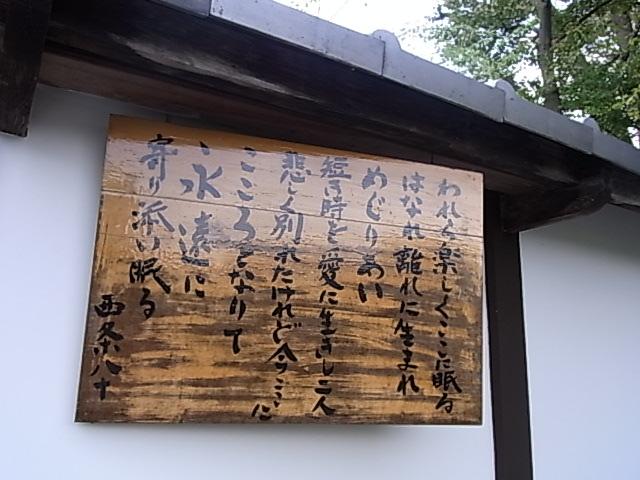 われら楽しくここに眠る
はなれ離れに生まれ
めぐりあい
短き時を愛に生きし二人
悲しく別れたけれど今ここに
こころとなりて
永遠に
寄り添い眠る
西条八十